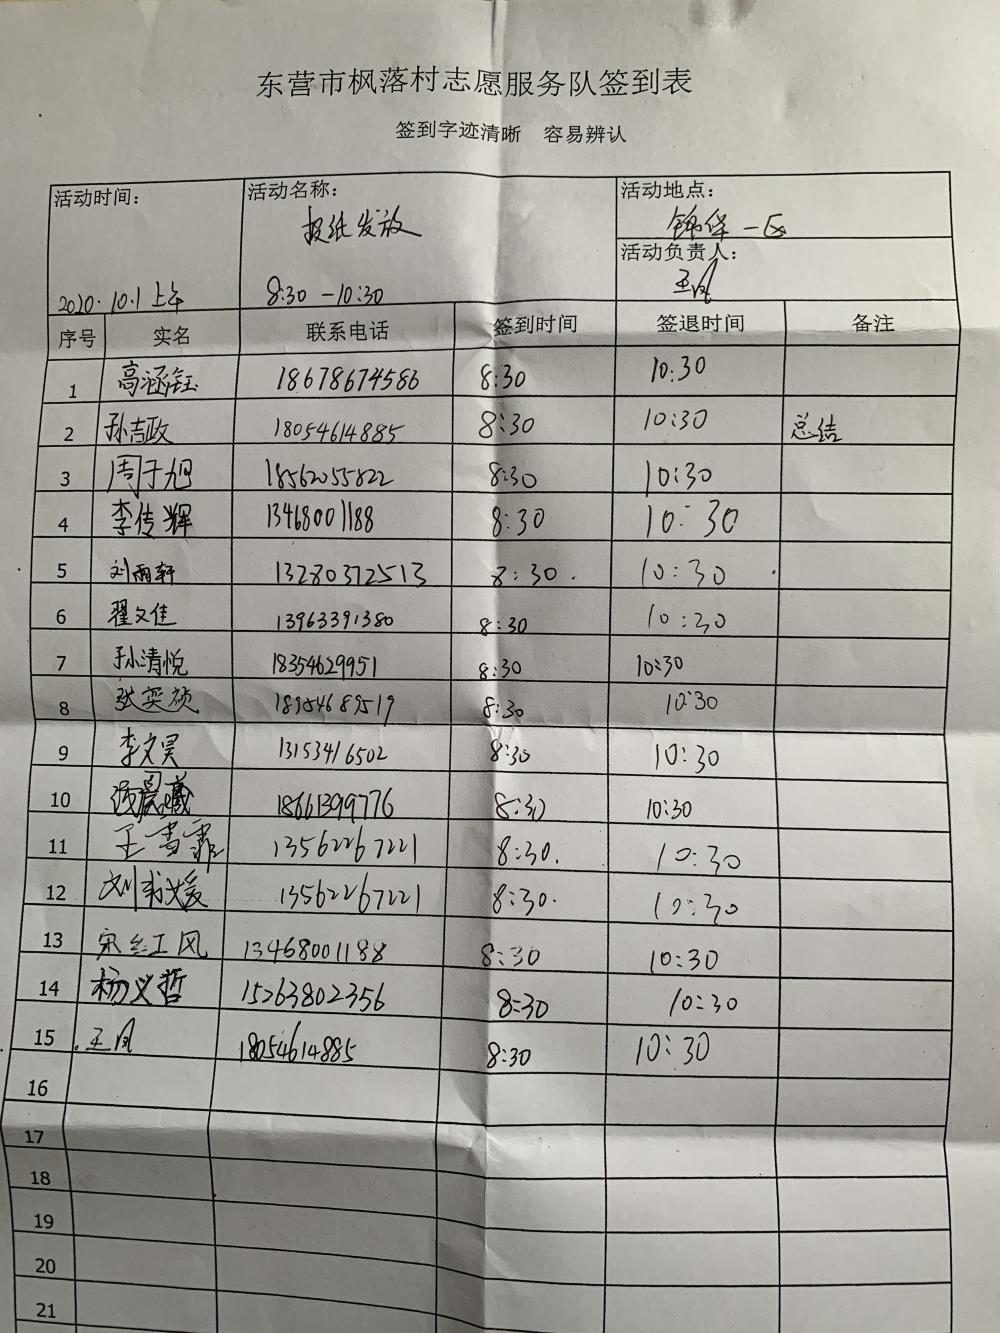 东营市枫落村志愿服务队签到表
签到字迹清晰 容易辨认
活动时间: 活动名称: 活动地点:
报纸发放 锦华一区
活动负责人:
王凤
2020.10.1上午 8:30-10:30
序号 实名 联系电话 签到时间 签退时间 备注
1 高涵钰 18678674586 8:30 10:30
2 孙吉政 18054614885 8:30 10:30 总结
3 周于旭 18562055822 8:30 10:30
4 李传辉 13468001188 8:30 10:30
5 刘雨轩 13280372513 8:30. 10:30
6 翟文佳 13963391380 8:30 10:30
7 孙清悦 18354629951 8:30 10:30
8 张奕祯 18954689519 8:30 10:30
9 李文昊 13153416502 8:30 10:30
10 晨曦 18661399776 8:30 10:30
11 王雪霏 13562267221 8:30. 10:30
12 刘媛 13562267221 8:30. 10:30
13 宋红风 13468001188 8:30 10:30
14 杨义哲 15263802356 8:30 10:30
15 王凤 18054614885 8:30 10:30
16
17
18
19
20
21